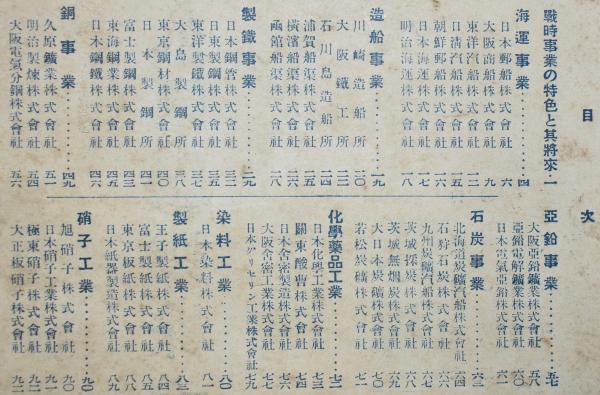 目次
戰時事業の特色と其將來…一
海運事業………四
日本郵船株式會社 六
大阪商船株式會社 九
東洋汽船株式會社 一二
日淸汽船株式會社 一五
朝鮮郵船株式會社 一六
日本海運株式會社 一七
明治海運株式會社 一八
造船事業………一九
川崎造船所 二〇
大阪鐵工所 二二
石川島造船所 二四
浦賀船渠株式會社 二五
橫濱船渠株式會社 二六
函館船渠株式會社 二八
製鐵事業………二九
日本鋼管株式會社 三二
日東製鋼株式會社 三五
東洋製鐵株式會社 三七
大島製鋼所 三八
東京鋼材株式會社 四〇
日本製鋼所 四一
富士製鋼株式會社 四三
東海鋼業株式會社 四四
日本鋼鐵株式會社 四六
銅事業………四九
久原鑛業株式會社 五一
明治製煉株式會社 五四
大阪電氣分銅株式會社 五六
亞鉛事業………五七
大阪亞鉛鑛業株式會社 五八
亞鉛電解鑛業株式會社 六〇
日本電氣亞鉛株式會社 六一
石炭事業………六三
北海道炭礦汽船株式會社 六四
石狩石炭株式會社 六六
九州炭礦汽船株式會社 六七
茨城採炭株式會社 六八
茨城無煙炭株式會社 六九
大日本炭礦株式會社 七〇
若松炭礦株式會社 七一
化學藥品工業………七二
日本化學工業株式會社 七三
關東酸曹株式會社 七四
日本舍密製造株式會社 七六
大阪舍密工業株式會社 七七
日本グリセリン工業株式會社 七九
染料工業………八〇
日本染料株式會社 八一
製紙工業………八三
王子製紙株式會社 八四
富士製紙株式會社 八五
東京板紙株式會社 八八
日本紙器製造株式會社 八九
硝子工業………九〇
旭硝子株式會社 九〇
日本硝子工業株式會社 九一
極東硝子株式會社 九二
大正板硝子株式會社 九二